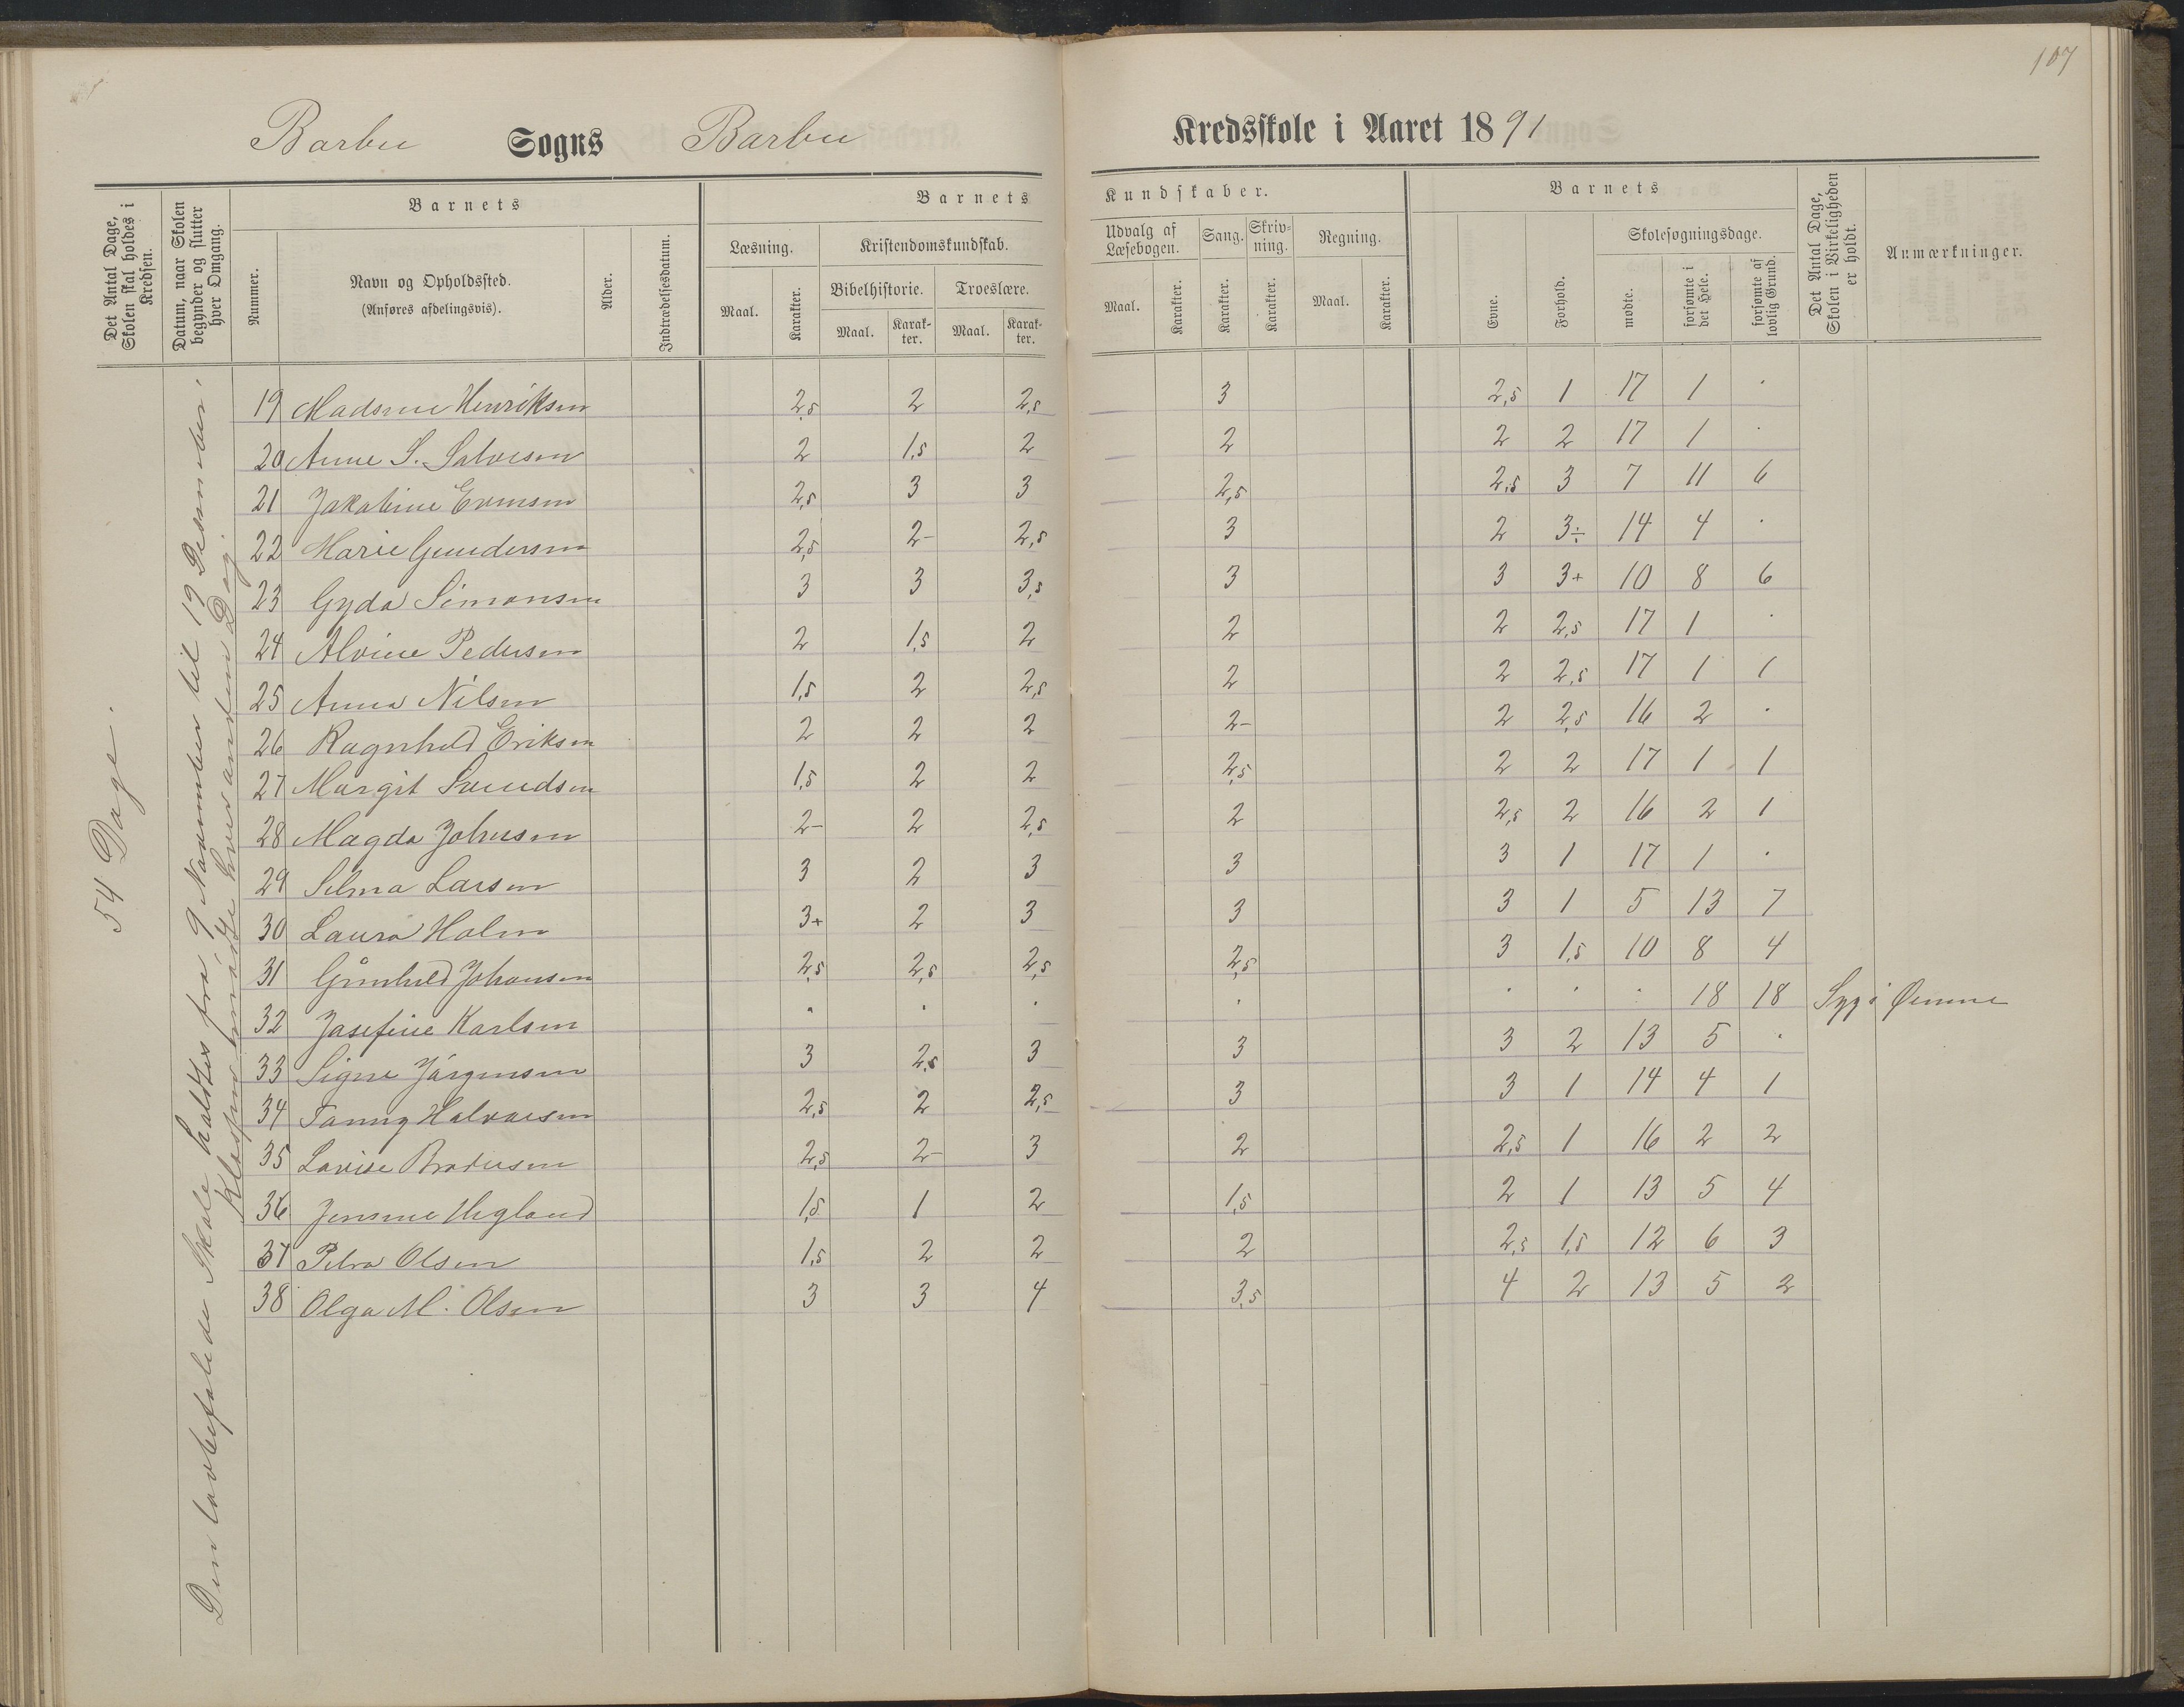 107
Barbu Sogns Barbu Kredsskole i Aaret 1891
Det Antal Dage, Skolen skal holdes i Kredsen.
Datum, naar Skolen begynder og slutter hver Omgang.
Barnets
Nummer.
Navn og Opholdssted.
(Anføres afdelingsvis).
Alder.
Indtrædelsesdatum.
Barnets Kundskaber.
Læsning.
Maal. Karakter.
Kristendomskundskab.
Bibelhistorie. Troeslære.
Maal. Karakter. Maal. Karakter.
Udvalg af Læsebogen.
Maal. Karakter.
Sang.
Karakter.
Skrivning.
Karakter.
Regning.
Maal. Karakter.
Barnets
Evne.
Forhold.
Skolesøgningsdage.
mødte.
forsømte i det Hele.
forsømte af lovlig Grund.
Det Antal Dage, Skolen i Virkeligheden er holdt.
Anmærkninger.
54 Dage.
Den lovbefalede Skole holdtes fra 9 November til 19 Desember.
Klassen mødte hver anden Dag.
19 Madsine Henriksen 2,5 2 2,5 3 2,5 1 17 1 .
20 Anne S. Salvesen 2 1,5 2 2 2 2 17 1 .
21 Jakobine Evensen 2,5 3 3 2,5 2,5 3 7 11 6
22 Marie Gundersen 2,5 2- 2,5 3 2 3÷ 14 4 .
23 Gyda Simonsen 3 3 3,5 3 3 3+ 10 8 6
24 Alvine Pedersen 2 1,5 2 2 2 2,5 17 1 .
25 Anna Nilsen 1,5 2 2,5 2 2 2,5 17 1 1
26 Ragnhild Eriksen 2 2 2 2- 2 2,5 16 2 .
27 Margit Svendsen 1,5 2 2 2,5 2 2 17 1 1
28 Magda Johnsen 2- 2 2,5 2 2,5 2 16 2 1
29 Selma Larsen 3 2 3 3 3 1 17 1 .
30 Laura Holm 3+ 2 3 3 3 1 5 13 7
31 Gunhild Johansen 2,5 2,5 2,5 2,5 3 1,5 10 8 4
32 Josefine Karlsen . . . . . . . 18 18 Syg i Øinene
33 Signe Jörgensen 3 2,5 3 3 3 2 13 5 .
34 Fanny Halvorsen 2,5 2 2,5 3 3 1 14 4 1
35 Lovise Brodersen 2,5 2- 3 2 2,5 1 16 2 2
36 Jensine Ugland 1,5 1 2 1,5 2 1 13 5 4
37 Petra Olsen 1,5 2 2 2 2,5 1,5 12 6 3
38 Olga M. Olsen 3 3 4 3,5 4 2 13 5 2